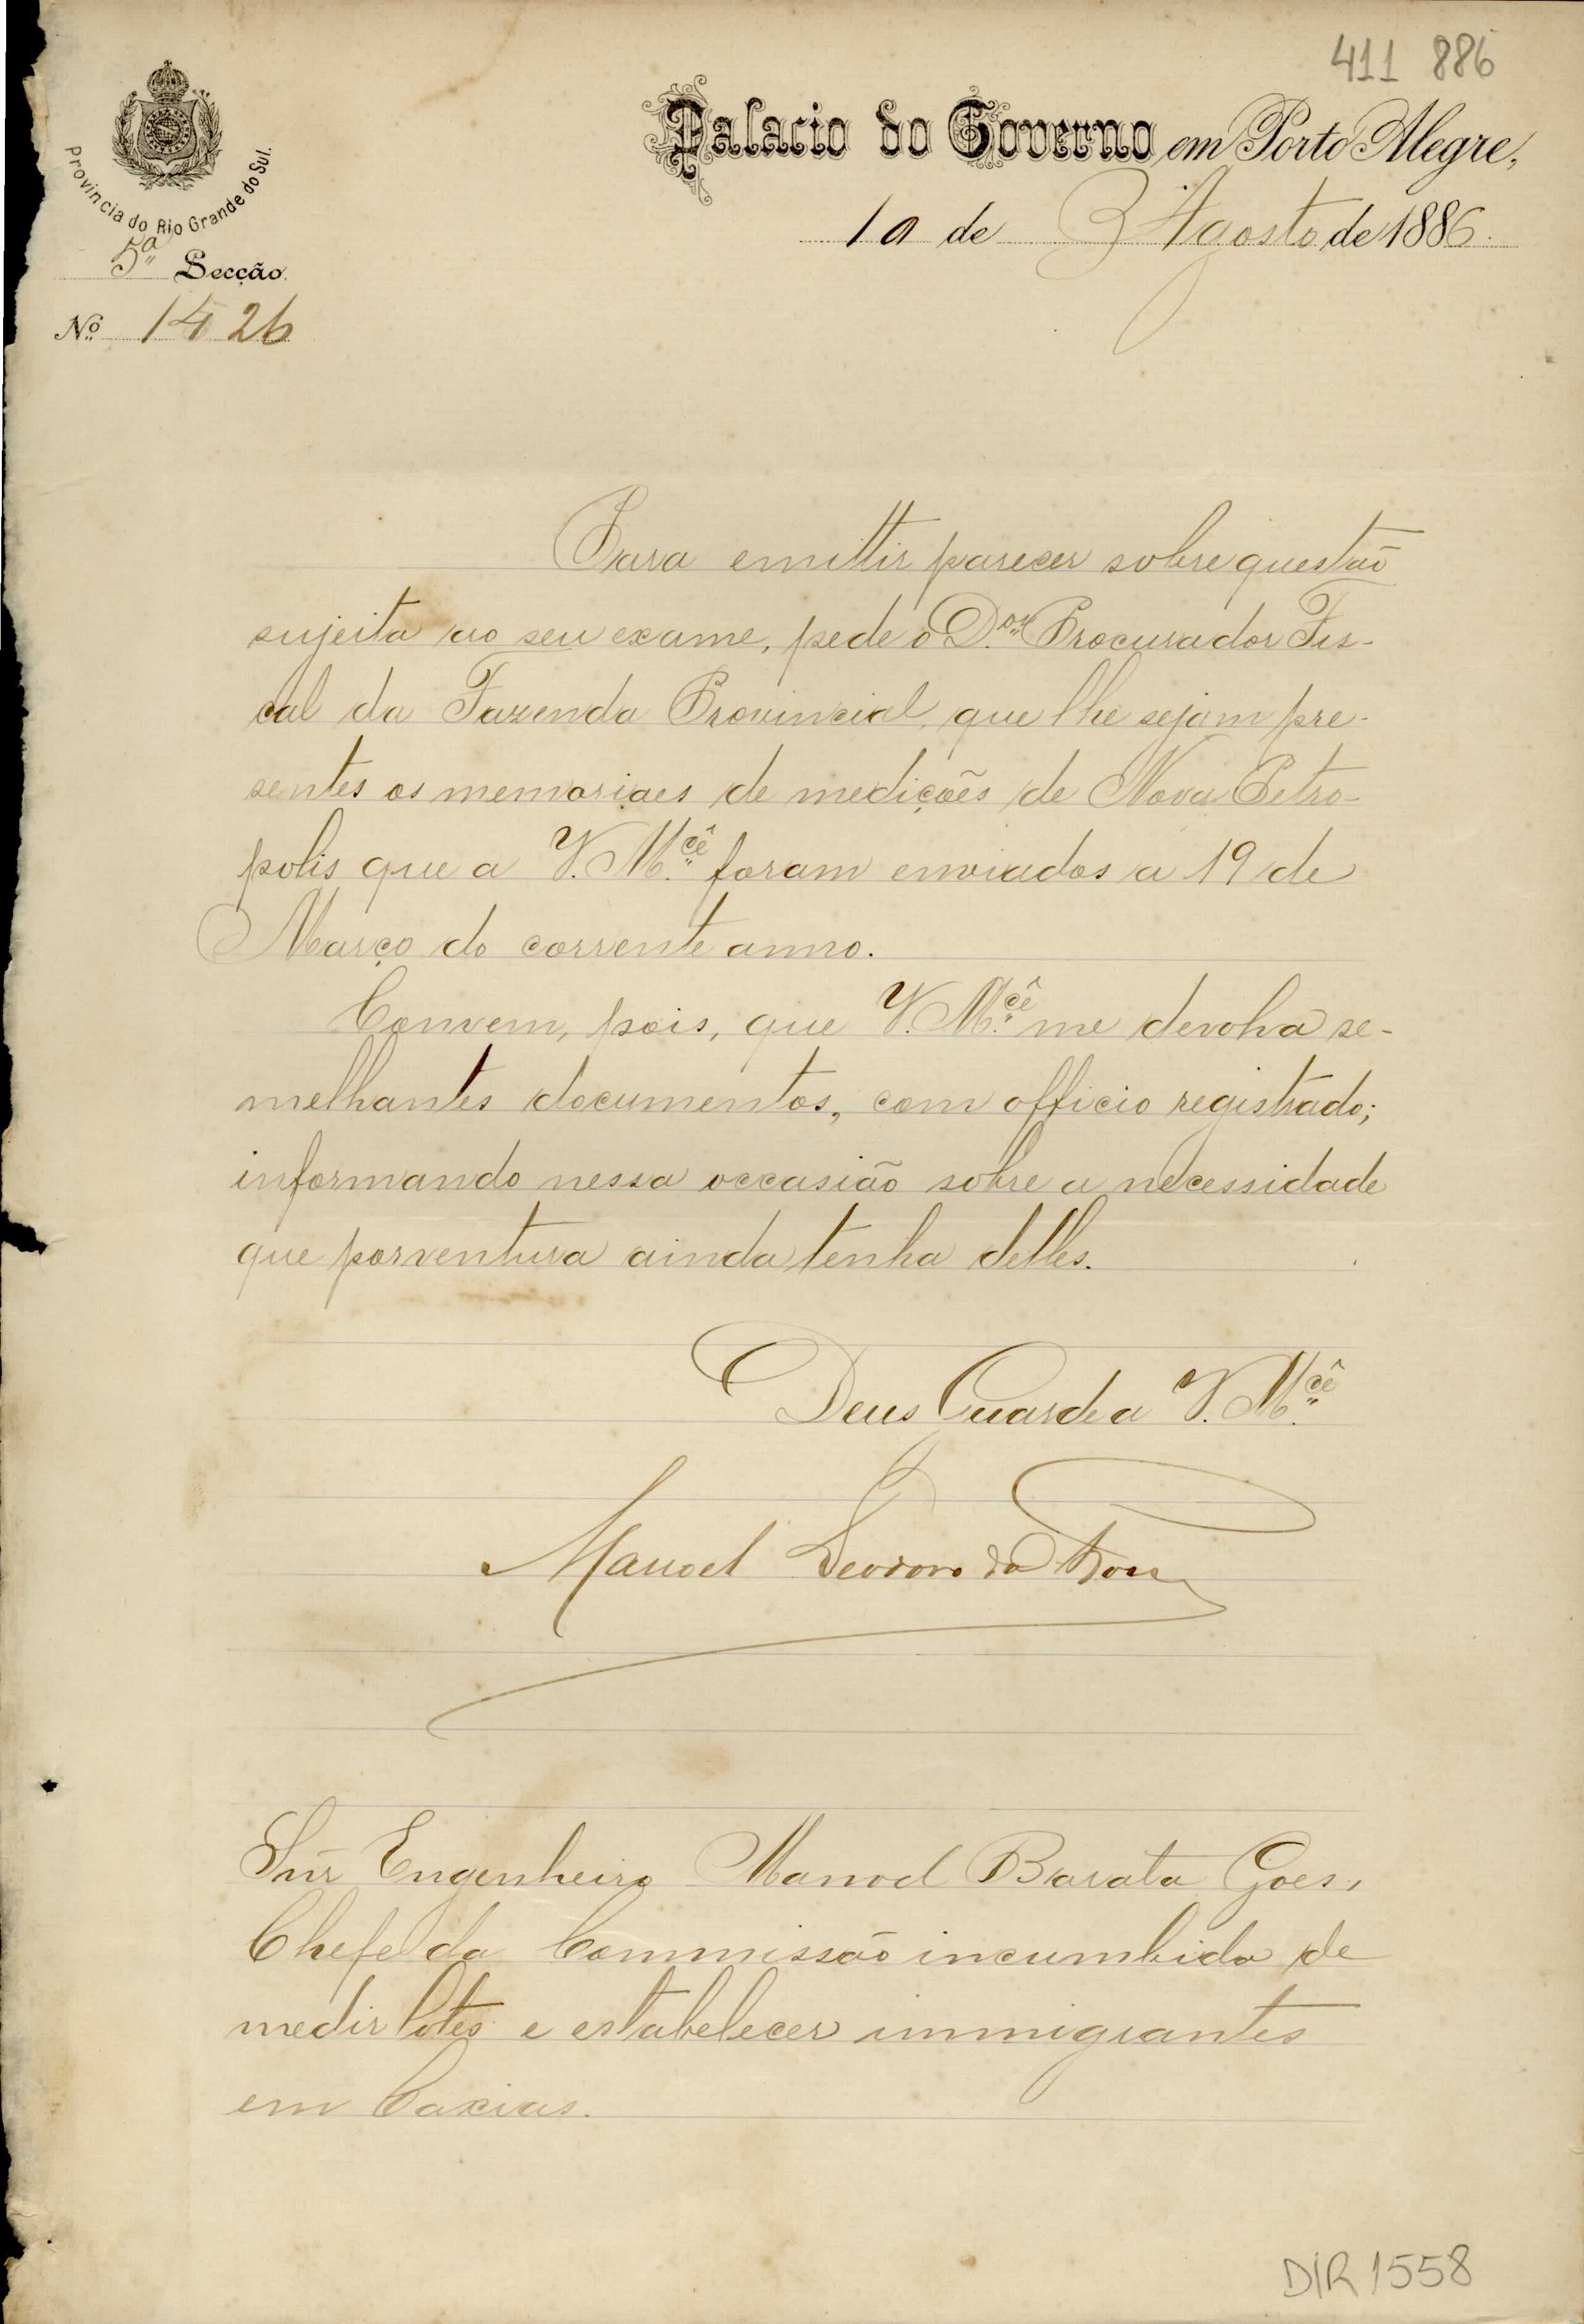 411 886
Palacio do Governo em Porto Alegre,
10 de Agosto de 1886.
Provincia do Rio Grande do Sul.
5ª Secção.
Nº 1426
Para emittir parecer sobre questão
sujeita ao seu exame, pede o D.or Procurador Fis-
cal da Fazenda Provincial, que lhe sejam pre-
sentes os memoriaes de medições de Nova Petro-
polis que a V. M.cê foram enviados a 19 de
Março do corrente anno.
Convem, pois, que V. M.cê me devolva se-
melhantes documentos, com officio registrado;
informando nessa occasião sobre a necessidade
que porventura ainda tenha delles.
Deus Guarde a V. M.cê
Manoel Deodoro da Fonca
Snr Engenheiro Manoel Barata Goes,
Chefe da Commissão incumbida de
medir lotes e estabelecer immigrantes
em Caxias.
DIR 1558